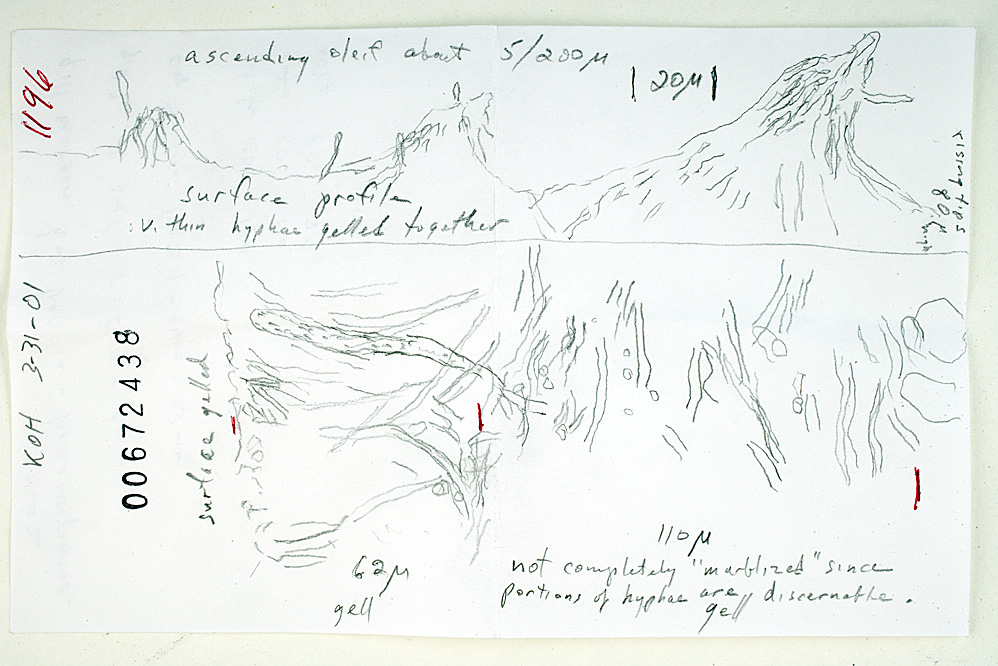 1196
ascending oleif about 5/200µ
| 20µ |
surface profile
: within hyphae gelled together
rissing tips
80µ
high
KOH 3-31-01
00672438
surface gelled
62µ
gell
110µ
not completely "marblized" since
portions of hyphae are discernable.
gell